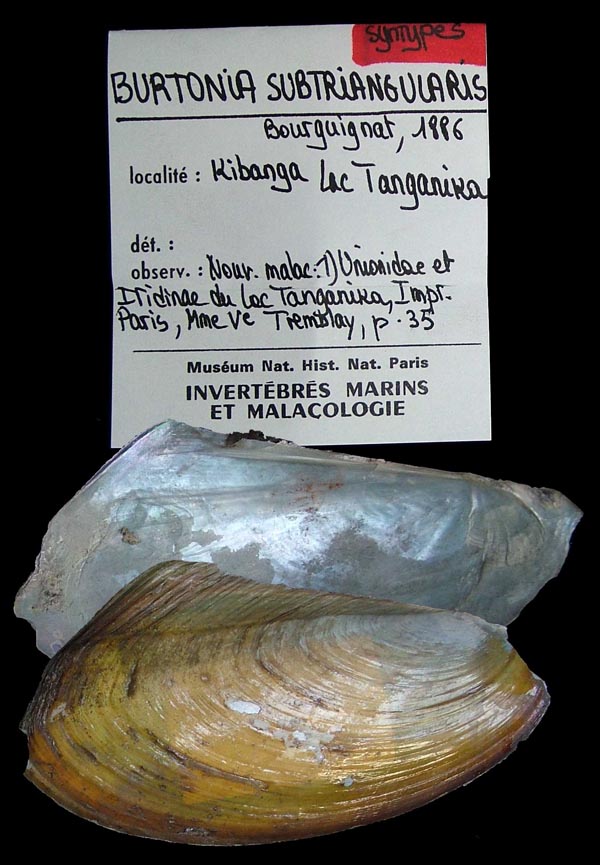 syntypes
BURTONIA SUBTRIANGULARIS
Bourguignat, 1886
localité : Kibanga Lac Tanganika
dét. :
observ. : Nouv. malac: 1) Unionidae et
Iridinae du Lac Tanganika, Impr.
Paris, Mme Ve Tremblay, p. 35
Muséum Nat. Hist. Nat. Paris
INVERTÉBRÉS MARINS
ET MALACOLOGIE